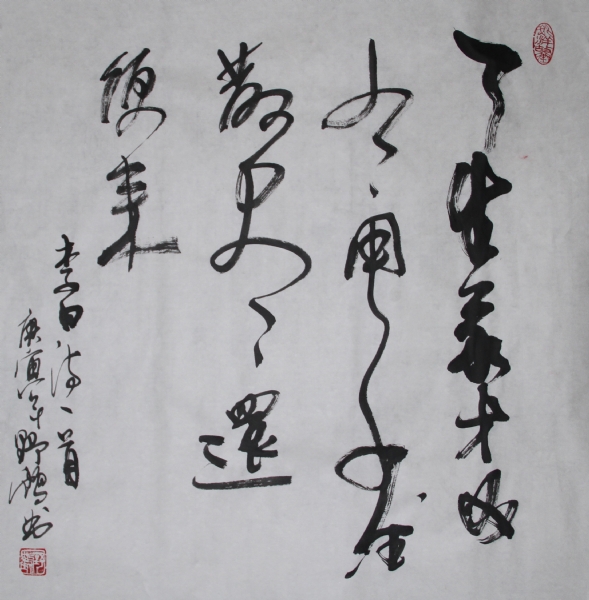 天生我才必
有用千金
散尽還
復来
李白诗一首
庚寅年野鴻书